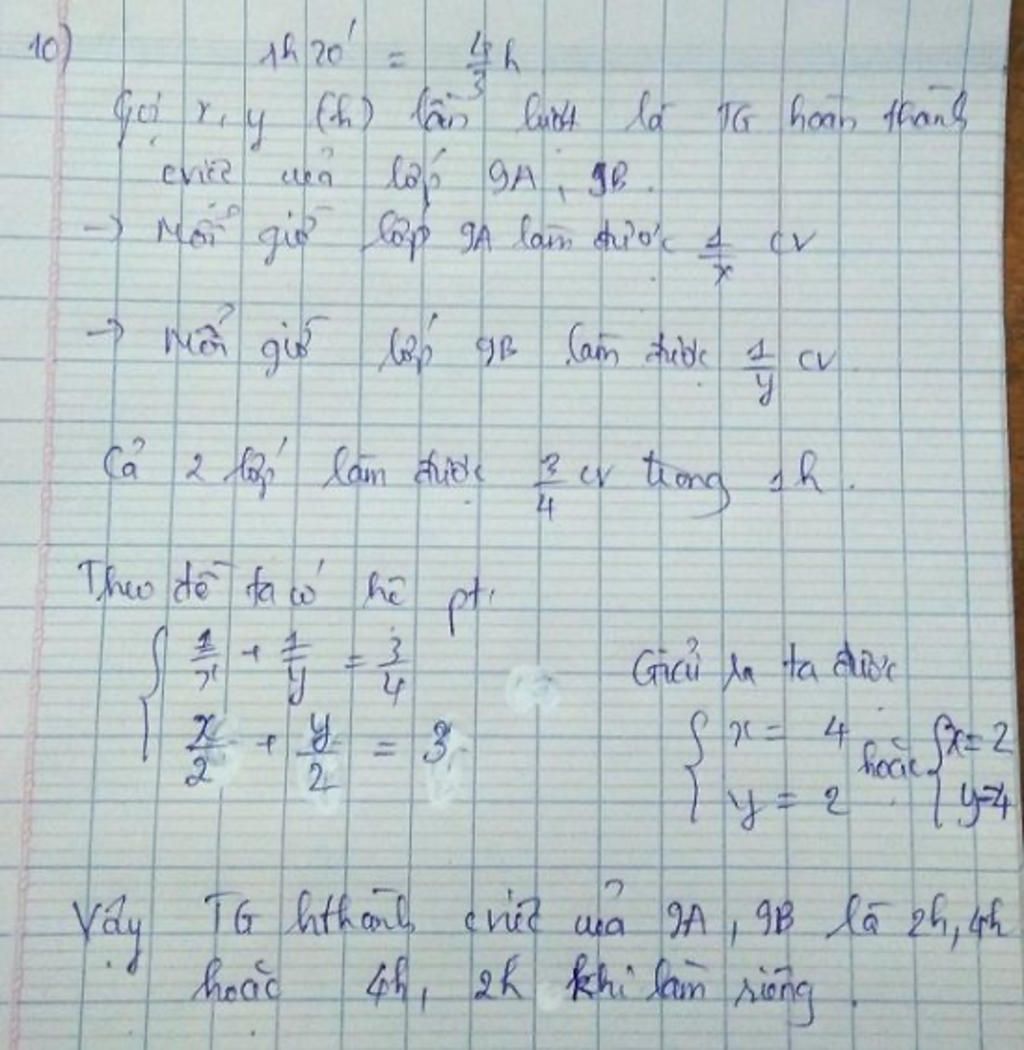 10) 1h 20' = 4/3 h
Gọi x, y (h) lần lượt là TG hoàn thành
cviệc của lớp 9A, 9B.
→ Mỗi giờ lớp 9A làm được 1/x cv
→ Mỗi giờ lớp 9B làm được 1/y cv.
Cả 2 lớp làm được 3/4 cv trong 1h.
Theo đề ta có hệ pt:
{ 1/x + 1/y = 3/4
x/2 + y/2 = 3
Giải ra ta được
{ x = 4 hoặc { x = 2
y = 2 y = 4
Vậy TG hthành cviệc của 9A, 9B là 2h, 4h
hoặc 4h, 2h khi làm riêng.